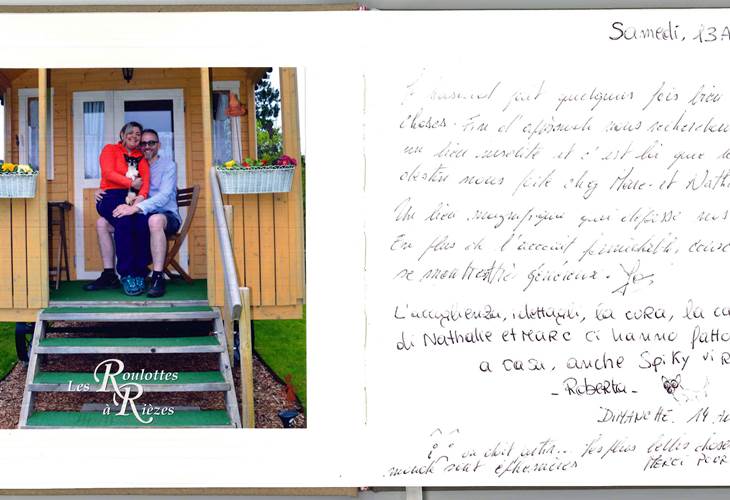 Les Roulottes
à Rièzes
Samedi, 13 A
Le hasard fait quelques fois bien
choses. Fin d'après-midi nous recherchons
un lieu insolite et c'est là que le
destin nous jette chez Marc et Nath
Un lieu magnifique qui dépasse nos
En plus de l'accueil formidable,
se montre très généreux.
L'accoglienza, i dettagli, la cura, la ca
di Nathalie et Marc ci hanno fatto
a casa, anche Spiky vi R
- Roberta -
DIMANCHE 14
on doit partir... les plus belles choses
monde sont éphémères MERCI POUR